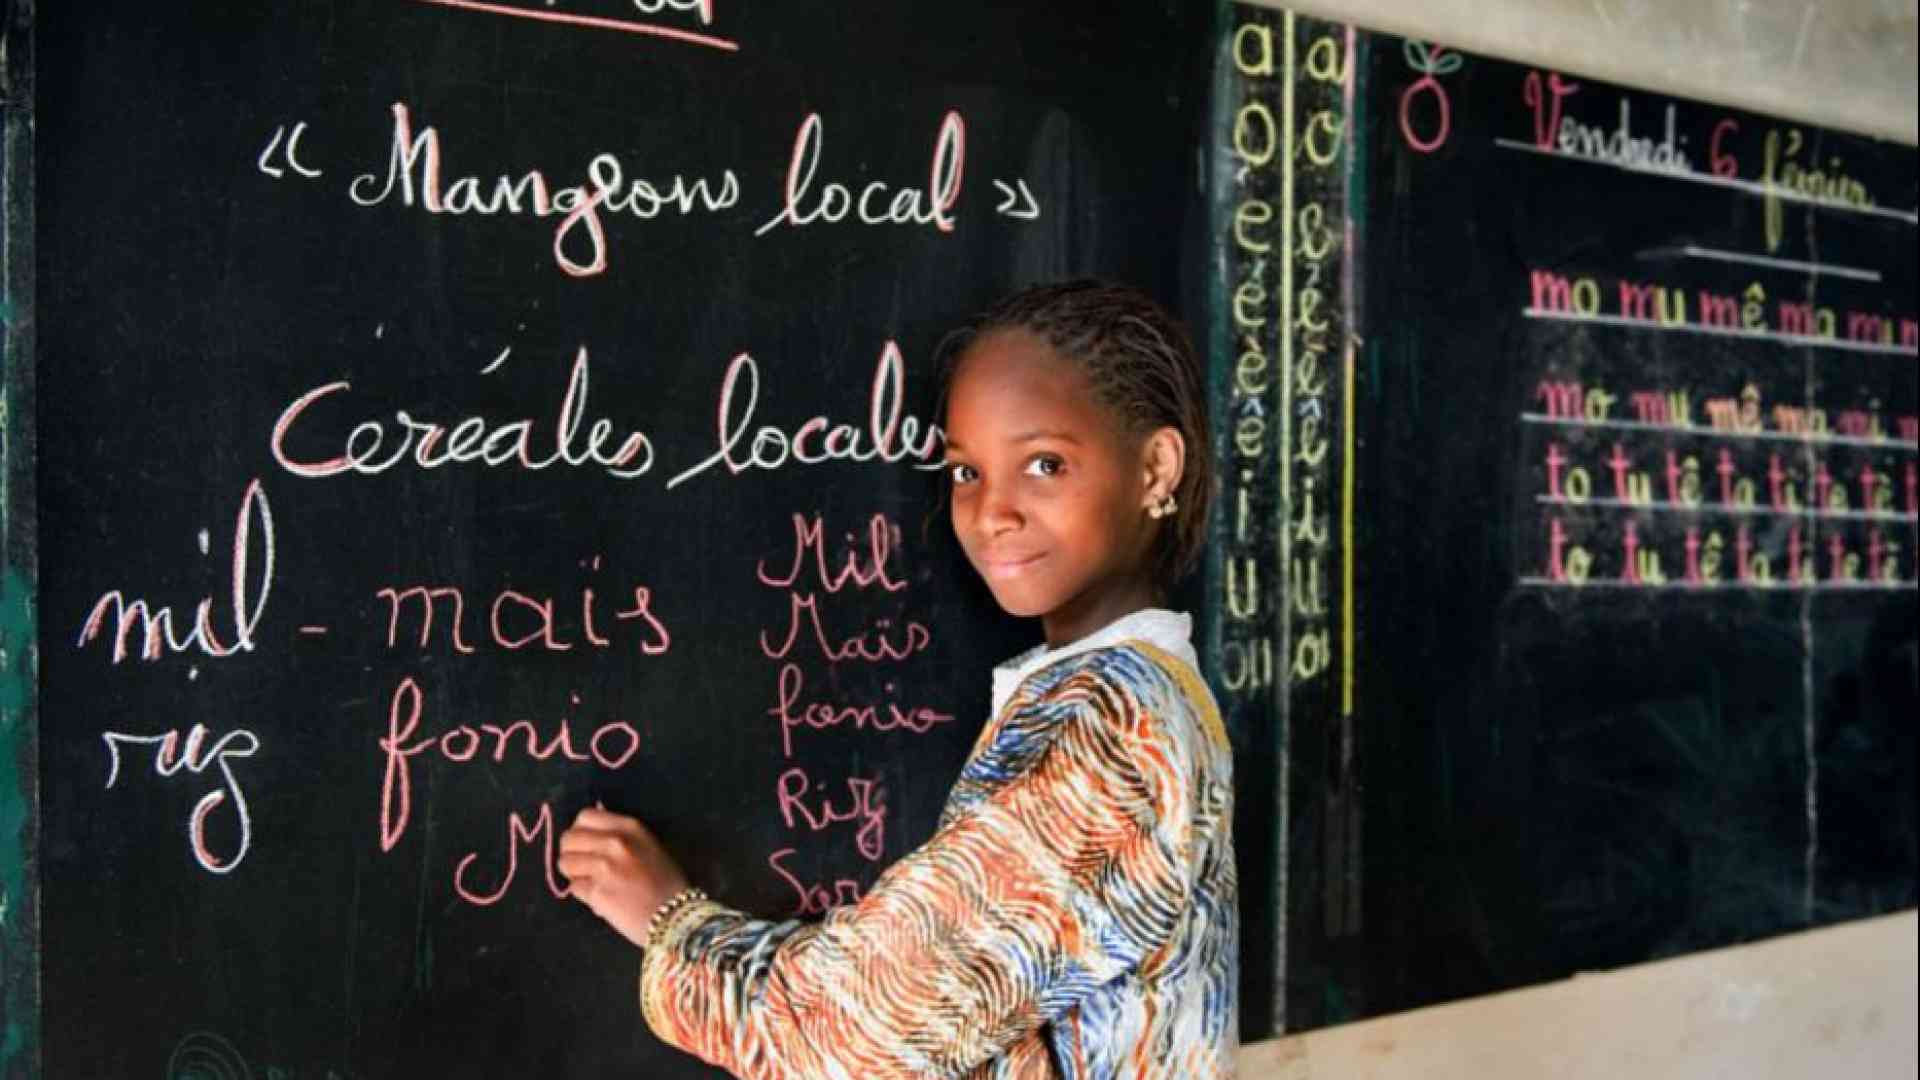 « Mangeons local »
Céréales locales
mil - maïs
riz fonio
M
Mil
Maïs
fonio
Riz
Sor
a a
o o
e e
é é
è è
ê ê
i i
u u
ou ou
Vendredi 6 février
mo mu mê ma mi
mo mu mê ma mi
to tu tê ta ti te tè
to tu tê ta ti te tè